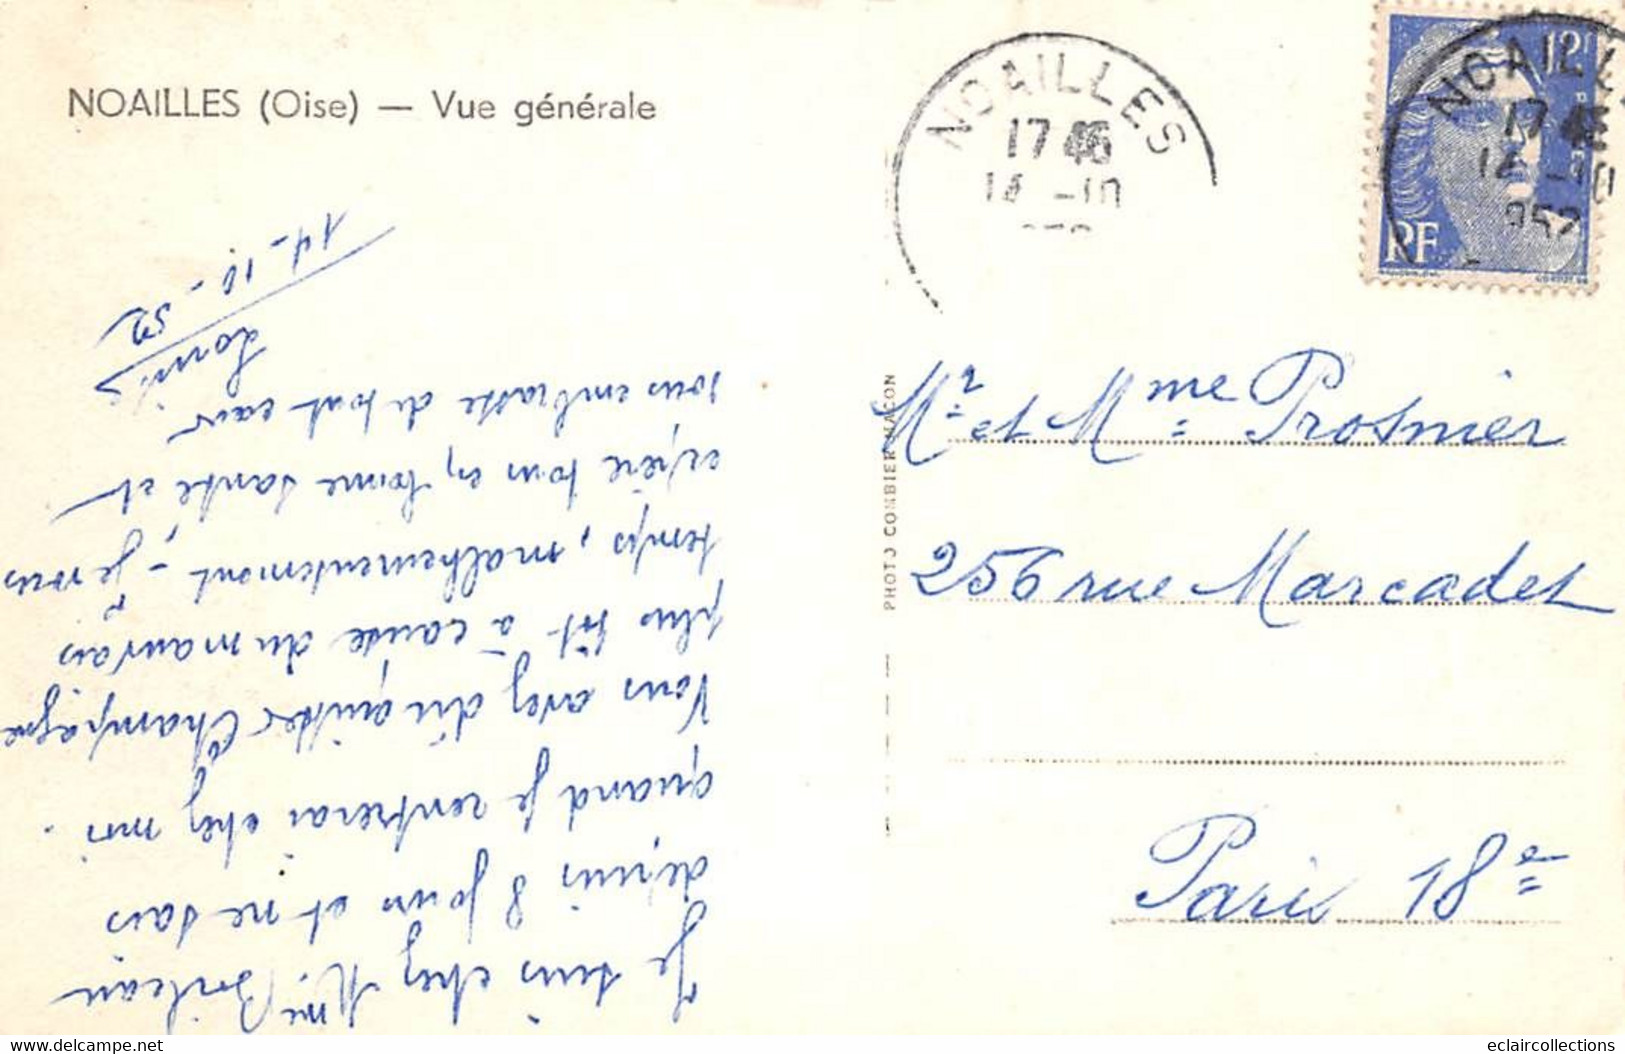 NOAILLES (Oise) — Vue générale
NOAILLES
17 45
14 -10
12F
RF
NOAILL
17 45
14 -10
952
Mr et Mme Prosnier
256 rue Marcadet
Paris 18e
PHOTO COMBIER MACON
Je suis chez Mme Boileau
depuis 8 jours et ne sais
quand je rentrerai chez moi.
Vous avez dû quitter Champagne
plus tôt à cause du mauvais
temps, malheureusement - je vous
espère tous en bonne santé et
vous embrasse de tout cœur
14-10-52
www.delcampe.net
eclaircollections